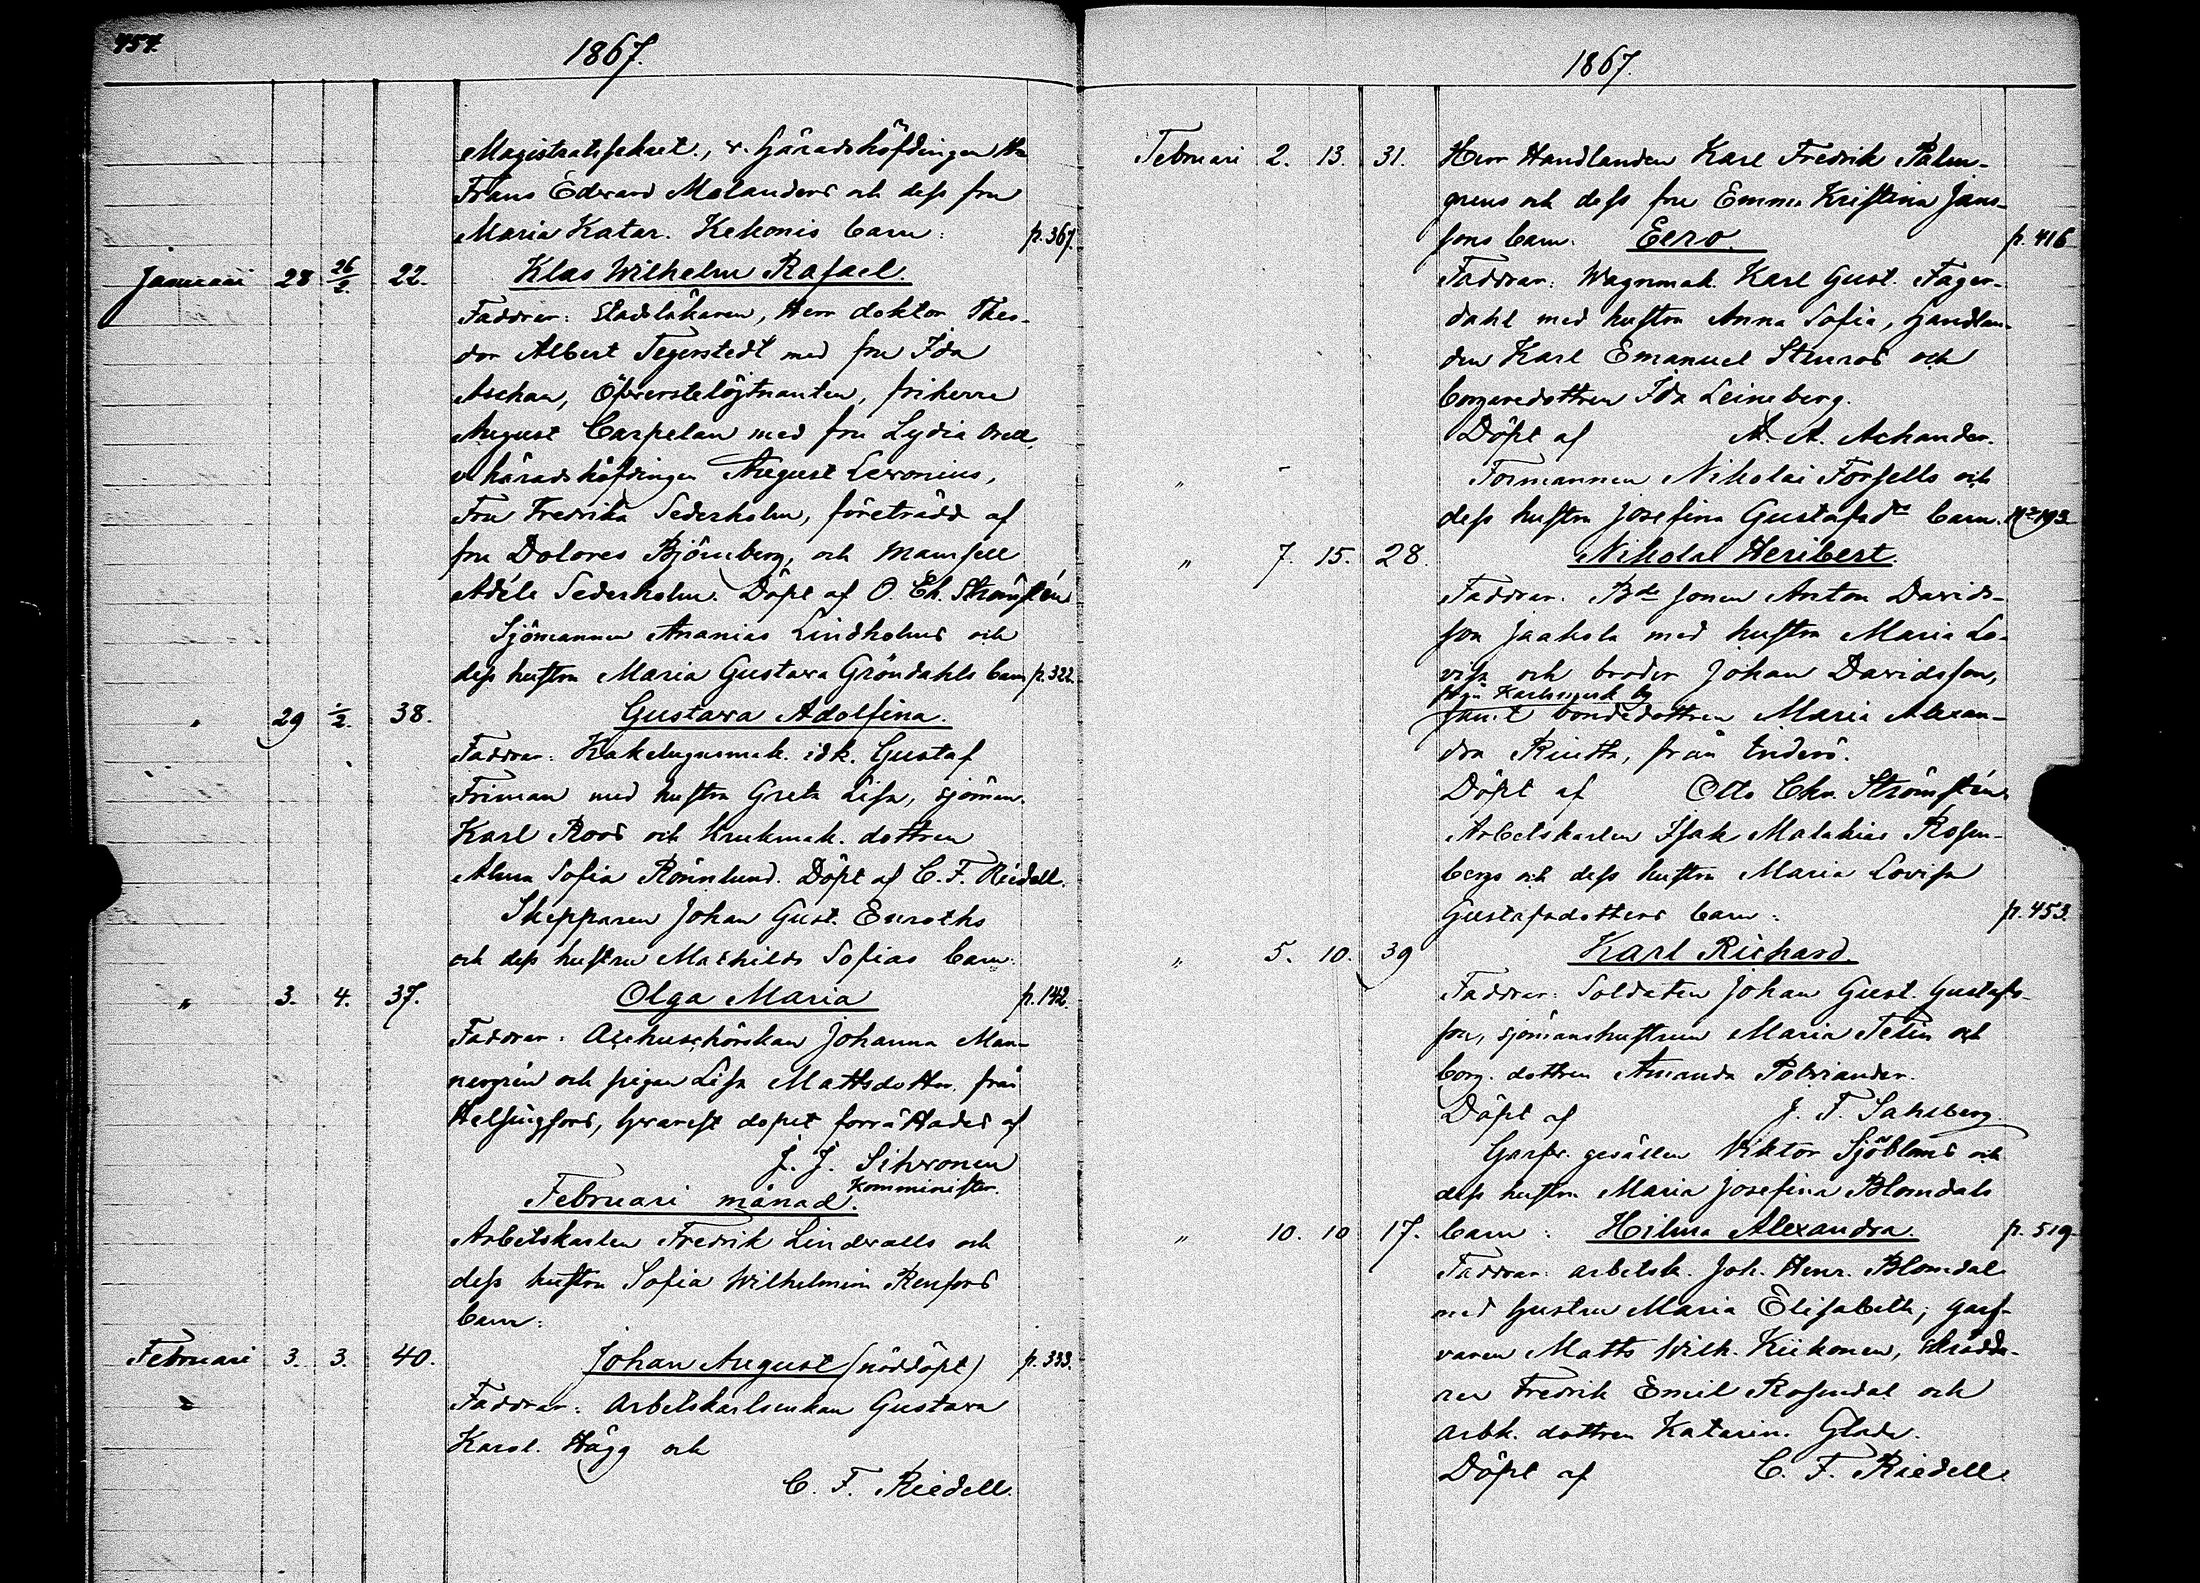 454.
1867.
Magistratssekret., v. Häradshöfdingen Hr
Frans Edvard Molanders och dess fru
Maria Katar. Kekonis barn: p. 367.
Januari 28 26/2. 22. Klas Wilhelm Rafael.
Faddrar: Stadsläkaren, Herr doktor Theo-
dor Albert Tegerstedt med fru Ida
Aschan, Öfverstelöjtnanten, friherre
August Carpelan med fru Lydia
v. häradshöfdingen August Levonius,
Fru Fredrika Sederholm, företrädd af
fru Dolores Björneberg, och Mamsell
Adéle Sederholm. Döpt af O. Ch. Strömstén
Sjömannen Ananias Lindholms och
dess hustru Maria Gustava Gröndahls barn p. 322.
" 29 -/2. 38. Gustava Adolfina.
Faddrar: Kakelugnsmak. idk. Gustaf
Friman med hustru Greta Lisa, sjöman.
Karl Roos och Krukmak. dottren
Alma Sofia Rönnlund. Döpt af C. F. Riedell.
Skepparen Johan Gust. Enroths
och dess hustru Mathilda Sofias barn:
" 3. 4. 37. Olga Maria p. 142.
Faddrar: Johanna Man-
nergrén och pigan Lisa Mattsdotter från
Helsingfors, hvarest dopet förrättades af
J. J. Sihvonen
Komminister.
Februari månad.
Arbetskarlen Fredrik Lindvalls och
dess hustru Sofia Wilhelmina Renfors
barn:
Februari 3. 3. 40. Johan August (nöddöpt) p. 333.
Faddrar: Arbetskarlsenkan Gustava
Karol. Hägg och
C. F. Riedell.
1867.
Februari 2. 13. 31. Herr Handlanden Karl Fredrik Palm-
grens och dess fru Emma Kristina Jans-
sons barn: Eero. p. 416
Faddrar: Wagnmak. Karl Gust. Fager-
dahl med hustru Anna Sofia, Handlan-
den Karl Emanuel Stenros och
borgaredottren Ida Leineberg.
Döpt af A. A. Achander.
" - Formannen Nikolai Forsells och
dess hustru Josefina Gustafsdr barn.
" 7. 15. 28. Nikolai Heribert.
Faddrar: Bdesonen Anton Davids-
son Jaakola med hustru Maria Lo-
visa och broder Johan Davidsson,
samt bondedottren Maria Alexan-
dra från Enderö.
Döpt af Otto Chr. Strömstén.
Arbetskarlen Isak Malakias Rosen-
bergs och dess hustru Maria Lovisa
Gustafsdotters barn: p. 453.
" 5. 10. 39 Karl Richard.
Faddrar: Soldaten Johan Gust. Gustafs-
son, sjömanshustrun Maria Telin och
borg. dottren Amanda Polviander.
Döpt af J. F. Sahlberg.
Garfv. gesällen Viktor Sjöbloms och
dess hustru Maria Josefina Blomdals
" 10. 10 17. barn: Hilma Alexandra. p. 519
Faddrar: arbetsk. Joh. Henr. Blomdal
med hustru Maria Elisabeth, garf-
varen Matts Wilh. Kiikonen, Skrädda-
ren Fredrik Emil Rosendal och
arbk. dottren Katarin. Glade.
Döpt af C. F. Riedell.